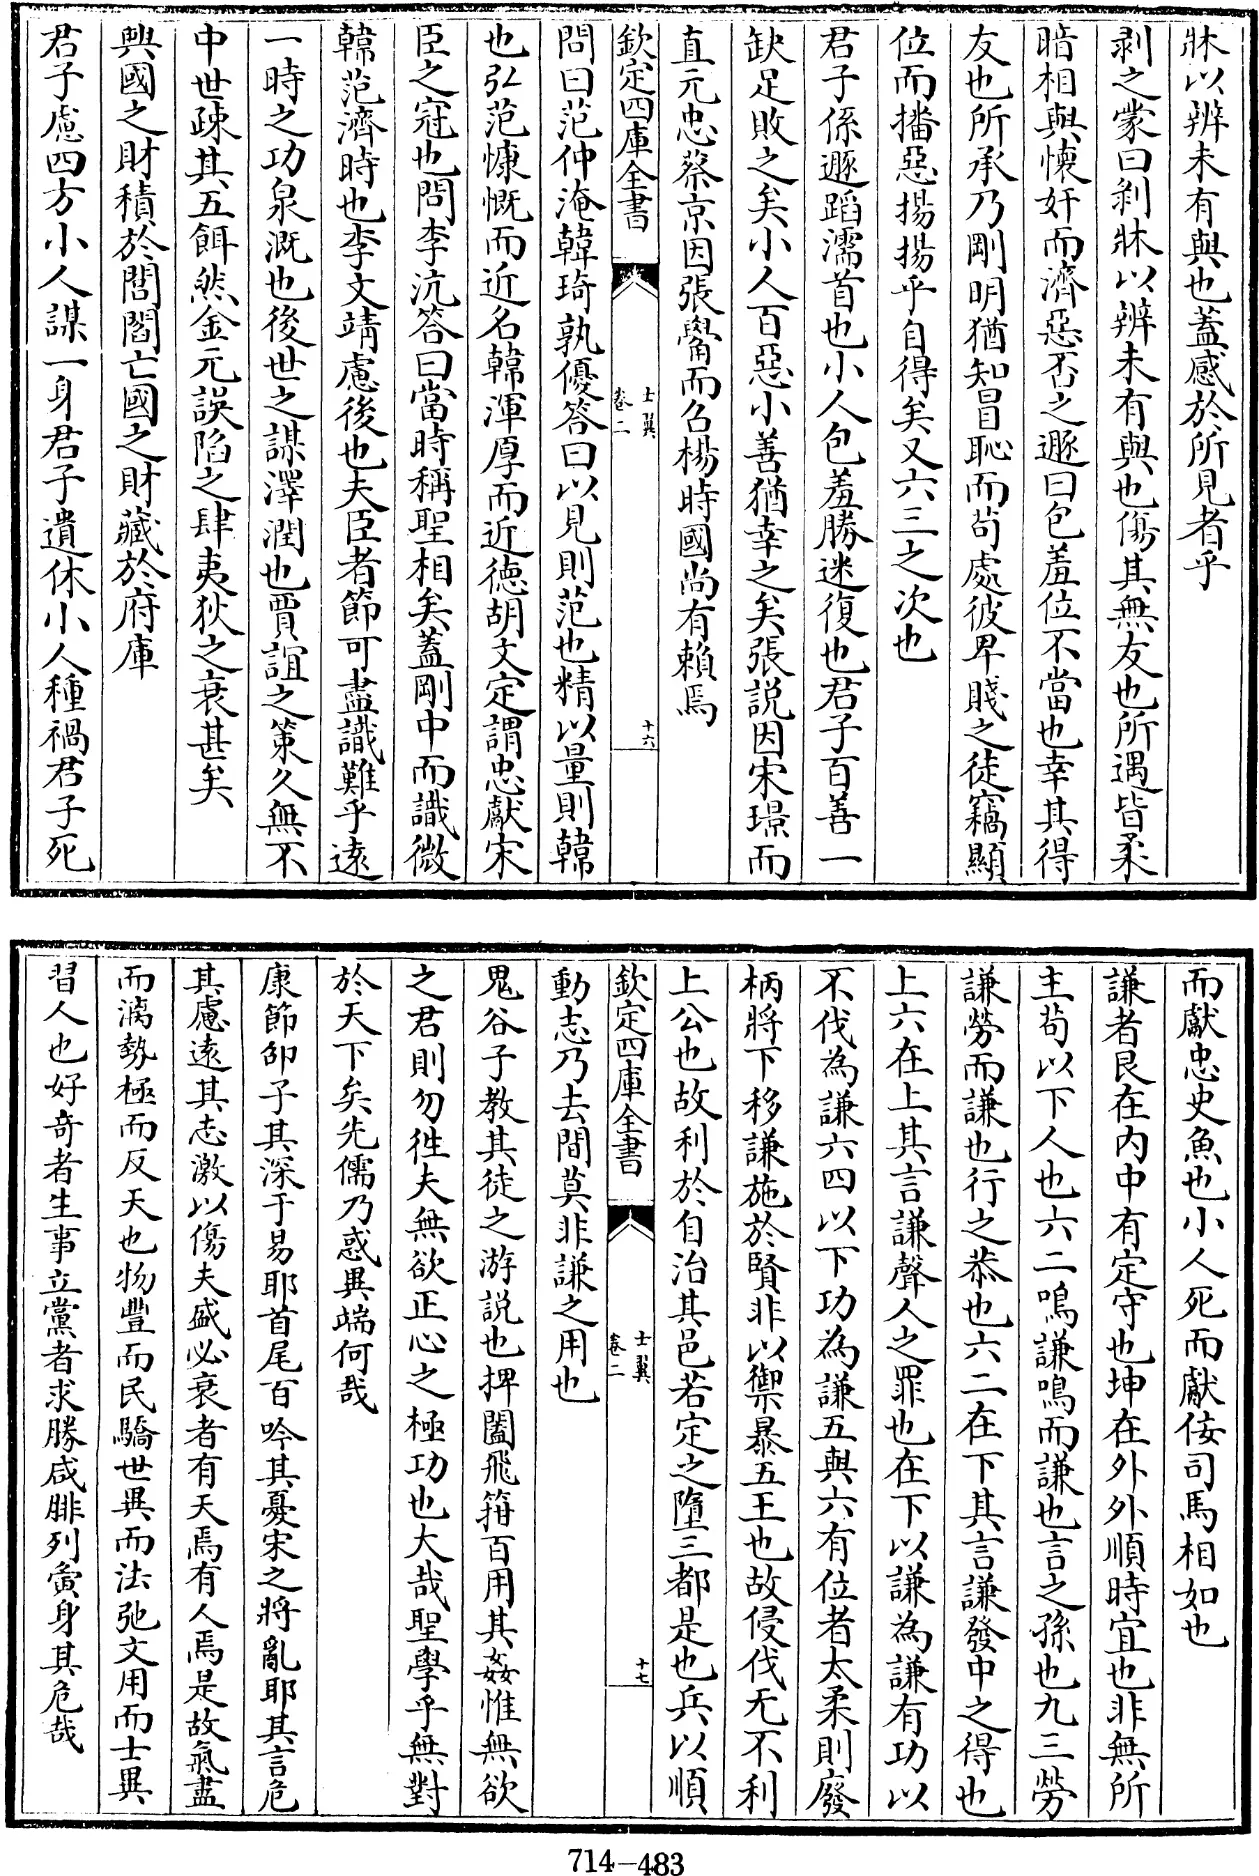 牀以辨未有與也蓋感於所見者乎
剥之䝉曰剥牀以辨未有與也傷其無友也所遇皆柔
暗相與懷奸而濟惡否之遯曰包羞位不當也幸其得
友也所承乃剛明猶知冒恥而苟處彼卑賤之徒竊顯
位而播惡揚揚乎自得矣又六三之次也
君子係遯蹈濡首也小人包羞勝迷復也君子百善一
缺足敗之矣小人百惡小善猶幸之矣張説因宋璟而
直元忠蔡京因張觷而召楊時國尚有賴焉
欽定四庫全書
士翼
卷二
十六
問曰范仲淹韓琦孰優答曰以見則范也精以量則韓
也弘范慷慨而近名韓渾厚而近德胡文定謂忠獻宋
臣之冠也問李沆答曰當時稱聖相矣蓋剛中而識微
韓范濟時也李文靖慮後也夫臣者節可盡識難乎逺
一時之功泉溉也後世之謀澤潤也賈誼之策久無不
中世疎其五餌然金元誤陷之肆夷狄之衰甚矣
興國之財積於閭閻亡國之財藏於府庫
君子慮四方小人謀一身君子遺休小人種禍君子死
而獻忠史魚也小人死而獻佞司馬相如也
謙者艮在内中有定守也坤在外外順時宜也非無所
主苟以下人也六二鳴謙鳴而謙也言之孫也九三勞
謙勞而謙也行之恭也六二在下其言謙發中之得也
上六在上其言謙聲人之罪也在下以謙為謙有功以
不伐為謙六四以下功為謙五與六有位者太柔則廢
柄將下移謙施於賢非以禦暴五王也故侵伐无不利
上公也故利於自治其邑若定之墮三都是也兵以順
欽定四庫全書
士翼
卷二
十七
動志乃去間莫非謙之用也
鬼谷子教其徒之游説也捭闔飛箝百用其姦惟無欲
之君則勿徃夫無欲正心之極功也大哉聖學乎無對
於天下矣先儒乃惑異端何哉
康節邵子其深于易耶首尾百吟其憂宋之將亂耶其言危
其慮逺其志激以傷夫盛必衰者有天焉有人焉是故氣盡
而漓勢極而反天也物豐而民驕世異而法弛文用而士異
習人也好竒者生事立黨者求勝咸腓列夤身其危哉
714-483